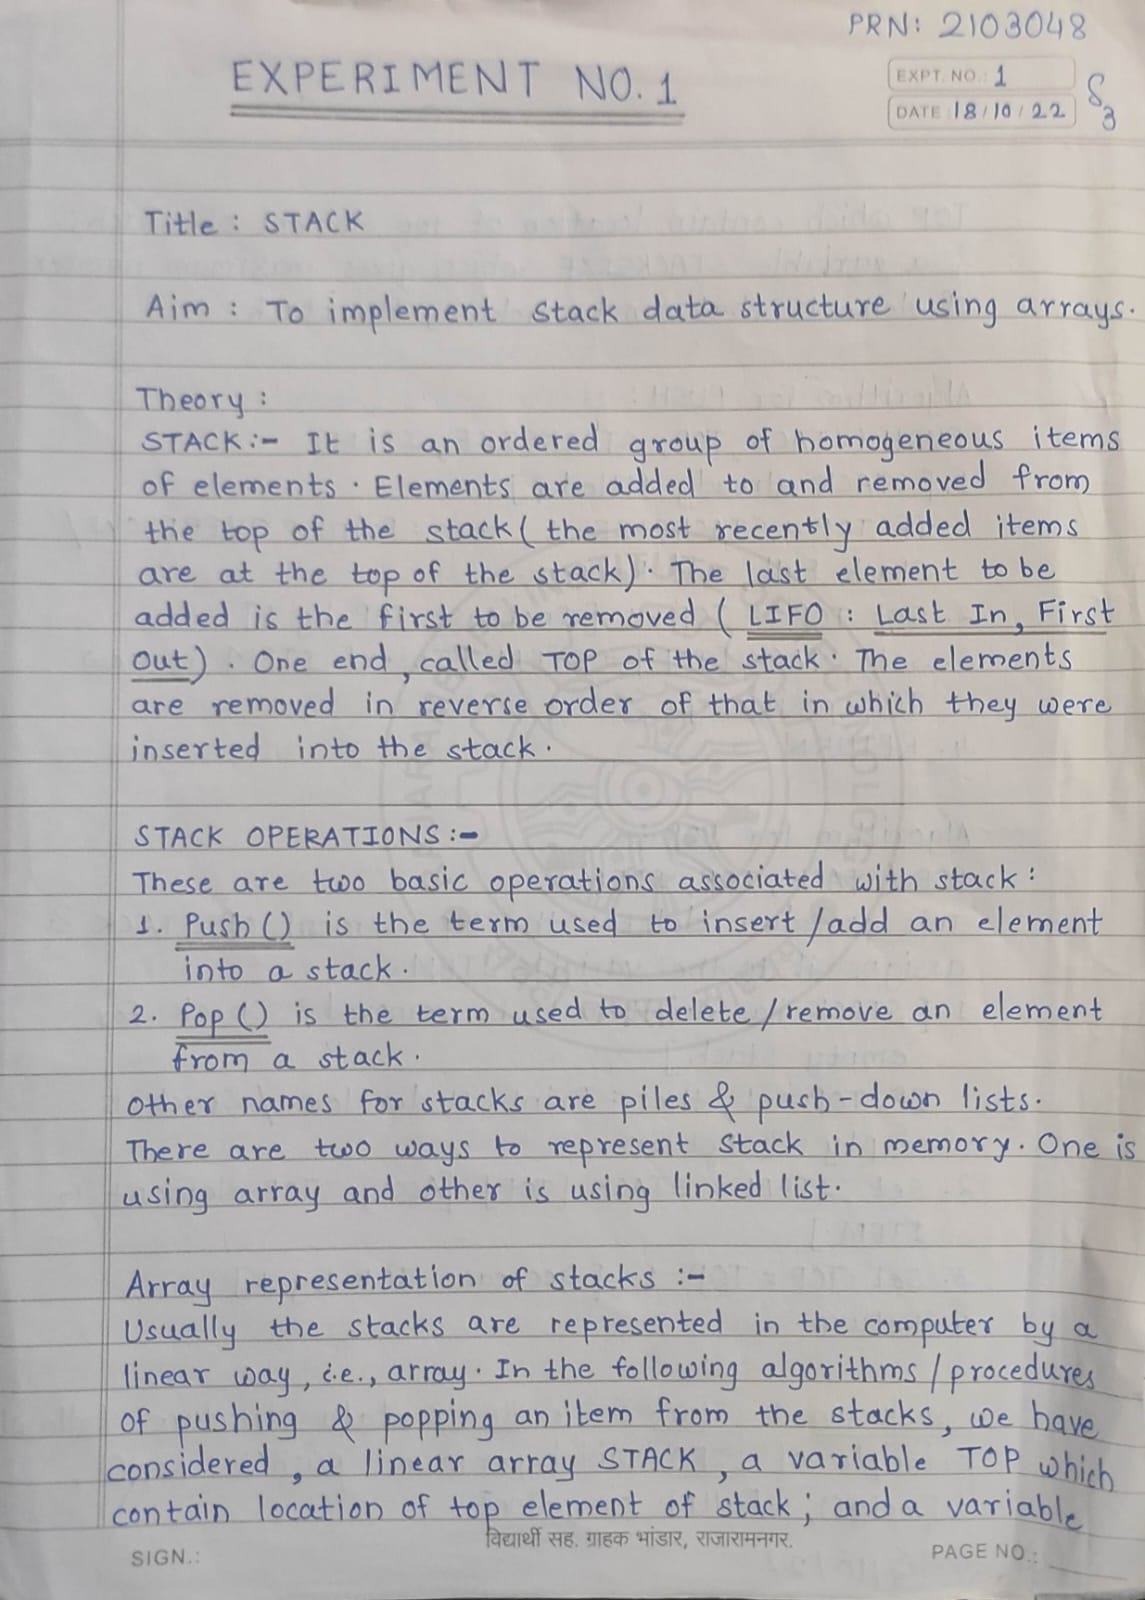 PRN: 2103048
EXPERIMENT NO. 1
EXPT. NO.: 1
DATE 18/10/22
S3
Title : STACK
Aim : To implement stack data structure using arrays.
Theory :
STACK :- It is an ordered group of homogeneous items
of elements. Elements are added to and removed from
the top of the stack( the most recently added items
are at the top of the stack). The last element to be
added is the first to be removed ( LIFO : Last In, First
Out) . One end, called TOP of the stack. The elements
are removed in reverse order of that in which they were
inserted into the stack.
STACK OPERATIONS :-
These are two basic operations associated with stack :
1. Push () is the term used to insert /add an element
into a stack.
2. Pop () is the term used to delete / remove an element
from a stack.
Other names for stacks are piles & push-down lists.
There are two ways to represent stack in memory. One is
using array and other is using linked list.
Array representation of stacks :-
Usually the stacks are represented in the computer by a
linear way, i.e., array. In the following algorithms / procedures
of pushing & popping an item from the stacks, we have
considered, a linear array STACK, a variable TOP which
contain location of top element of stack; and a variable
विद्यार्थी सह. ग्राहक भांडार, राजारामनगर.
SIGN.:
PAGE NO.: